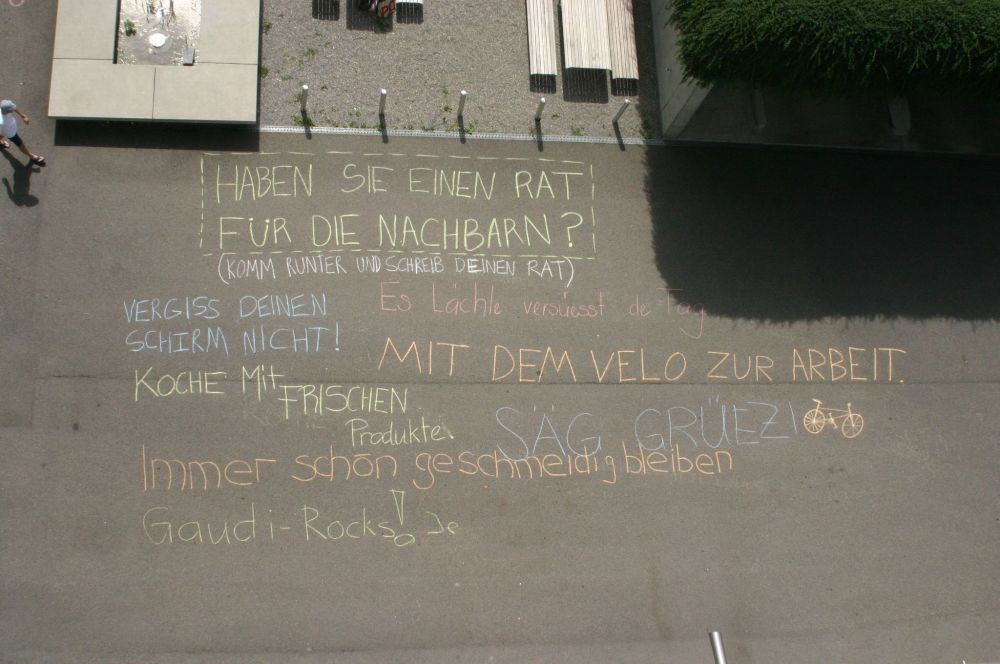 HABEN SIE EINEN RAT
FÜR DIE NACHBARN?
(KOMM RUNTER UND SCHREIB DEINEN RAT)
Es Lächle versüesst de Tag
VERGISS DEINEN
SCHIRM NICHT!
MIT DEM VELO ZUR ARBEIT.
KOCHE MIT
FRISCHEN
Produkte
SÄG GRÜEZI
Immer schön geschmeidig bleiben
Gaudi-Rocks!